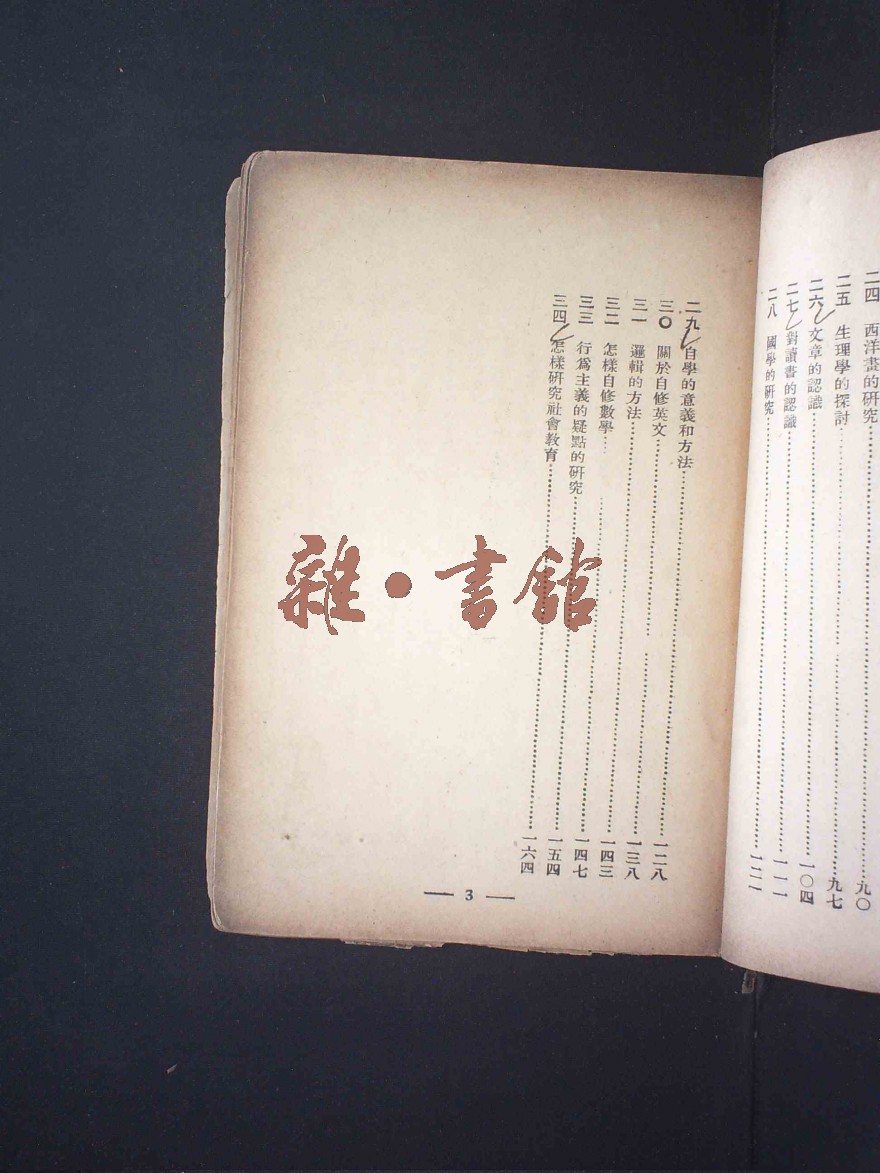 二四 西洋畫的研究……九〇
二五 生理學的探討……九七
二六 文章的認識……一〇四
二七 對讀書的認識……一一一
二八 國學的研究……一二一
二九 自學的意義和方法……一二八
三〇 關於自修英文……一三八
三一 邏輯的方法……一四三
三二 怎樣自修數學……一四七
三三 行爲主義的疑點的研究……一五四
三四 怎樣研究社會教育……一六四
3
雜·書館